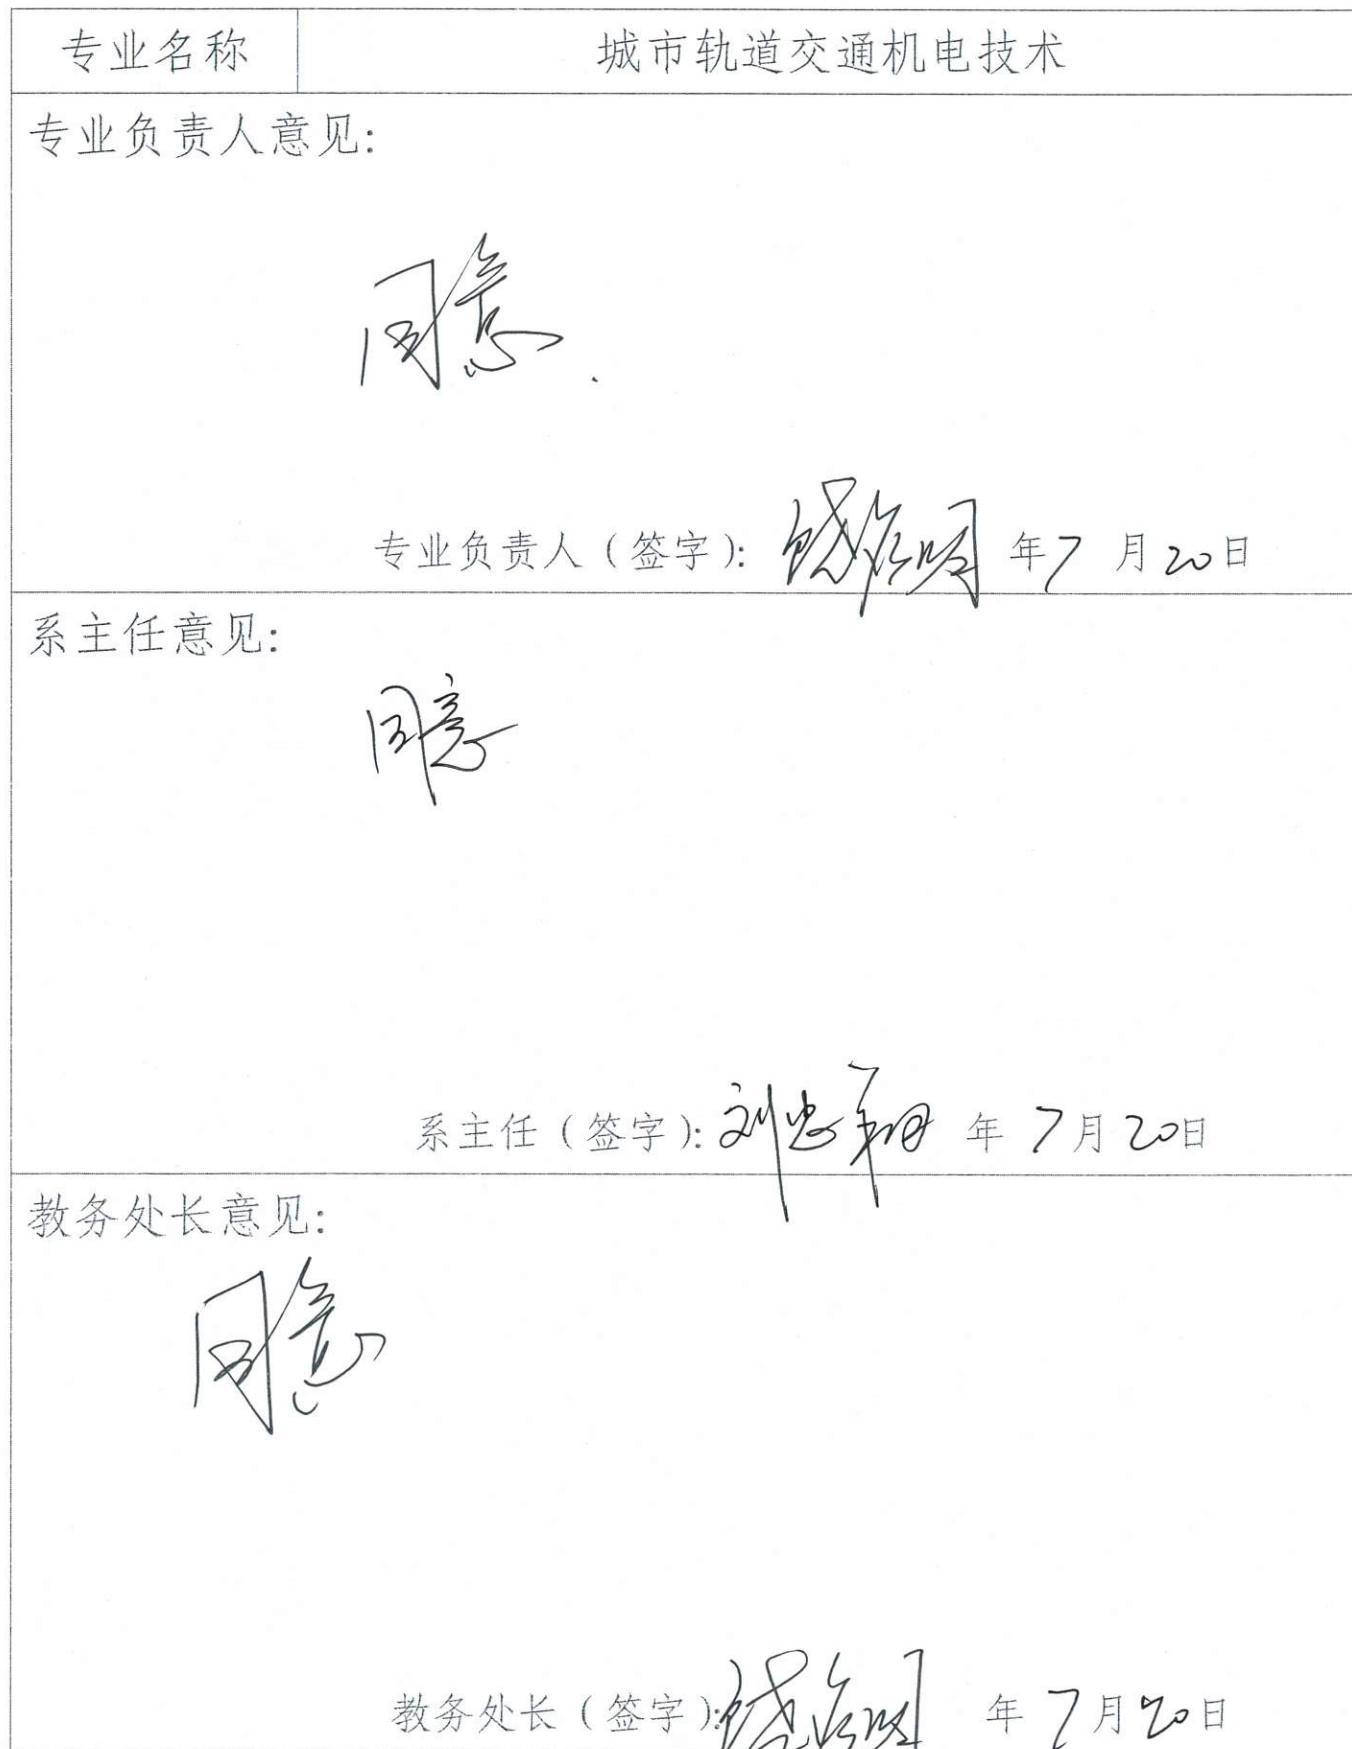 专业名称 城市轨道交通机电技术
专业负责人意见:
同意.
专业负责人(签字): 年7月20日
系主任意见:
同意
系主任(签字): 刘忠翔 年7月20日
教务处长意见:
同意
教务处长(签字): 年7月20日